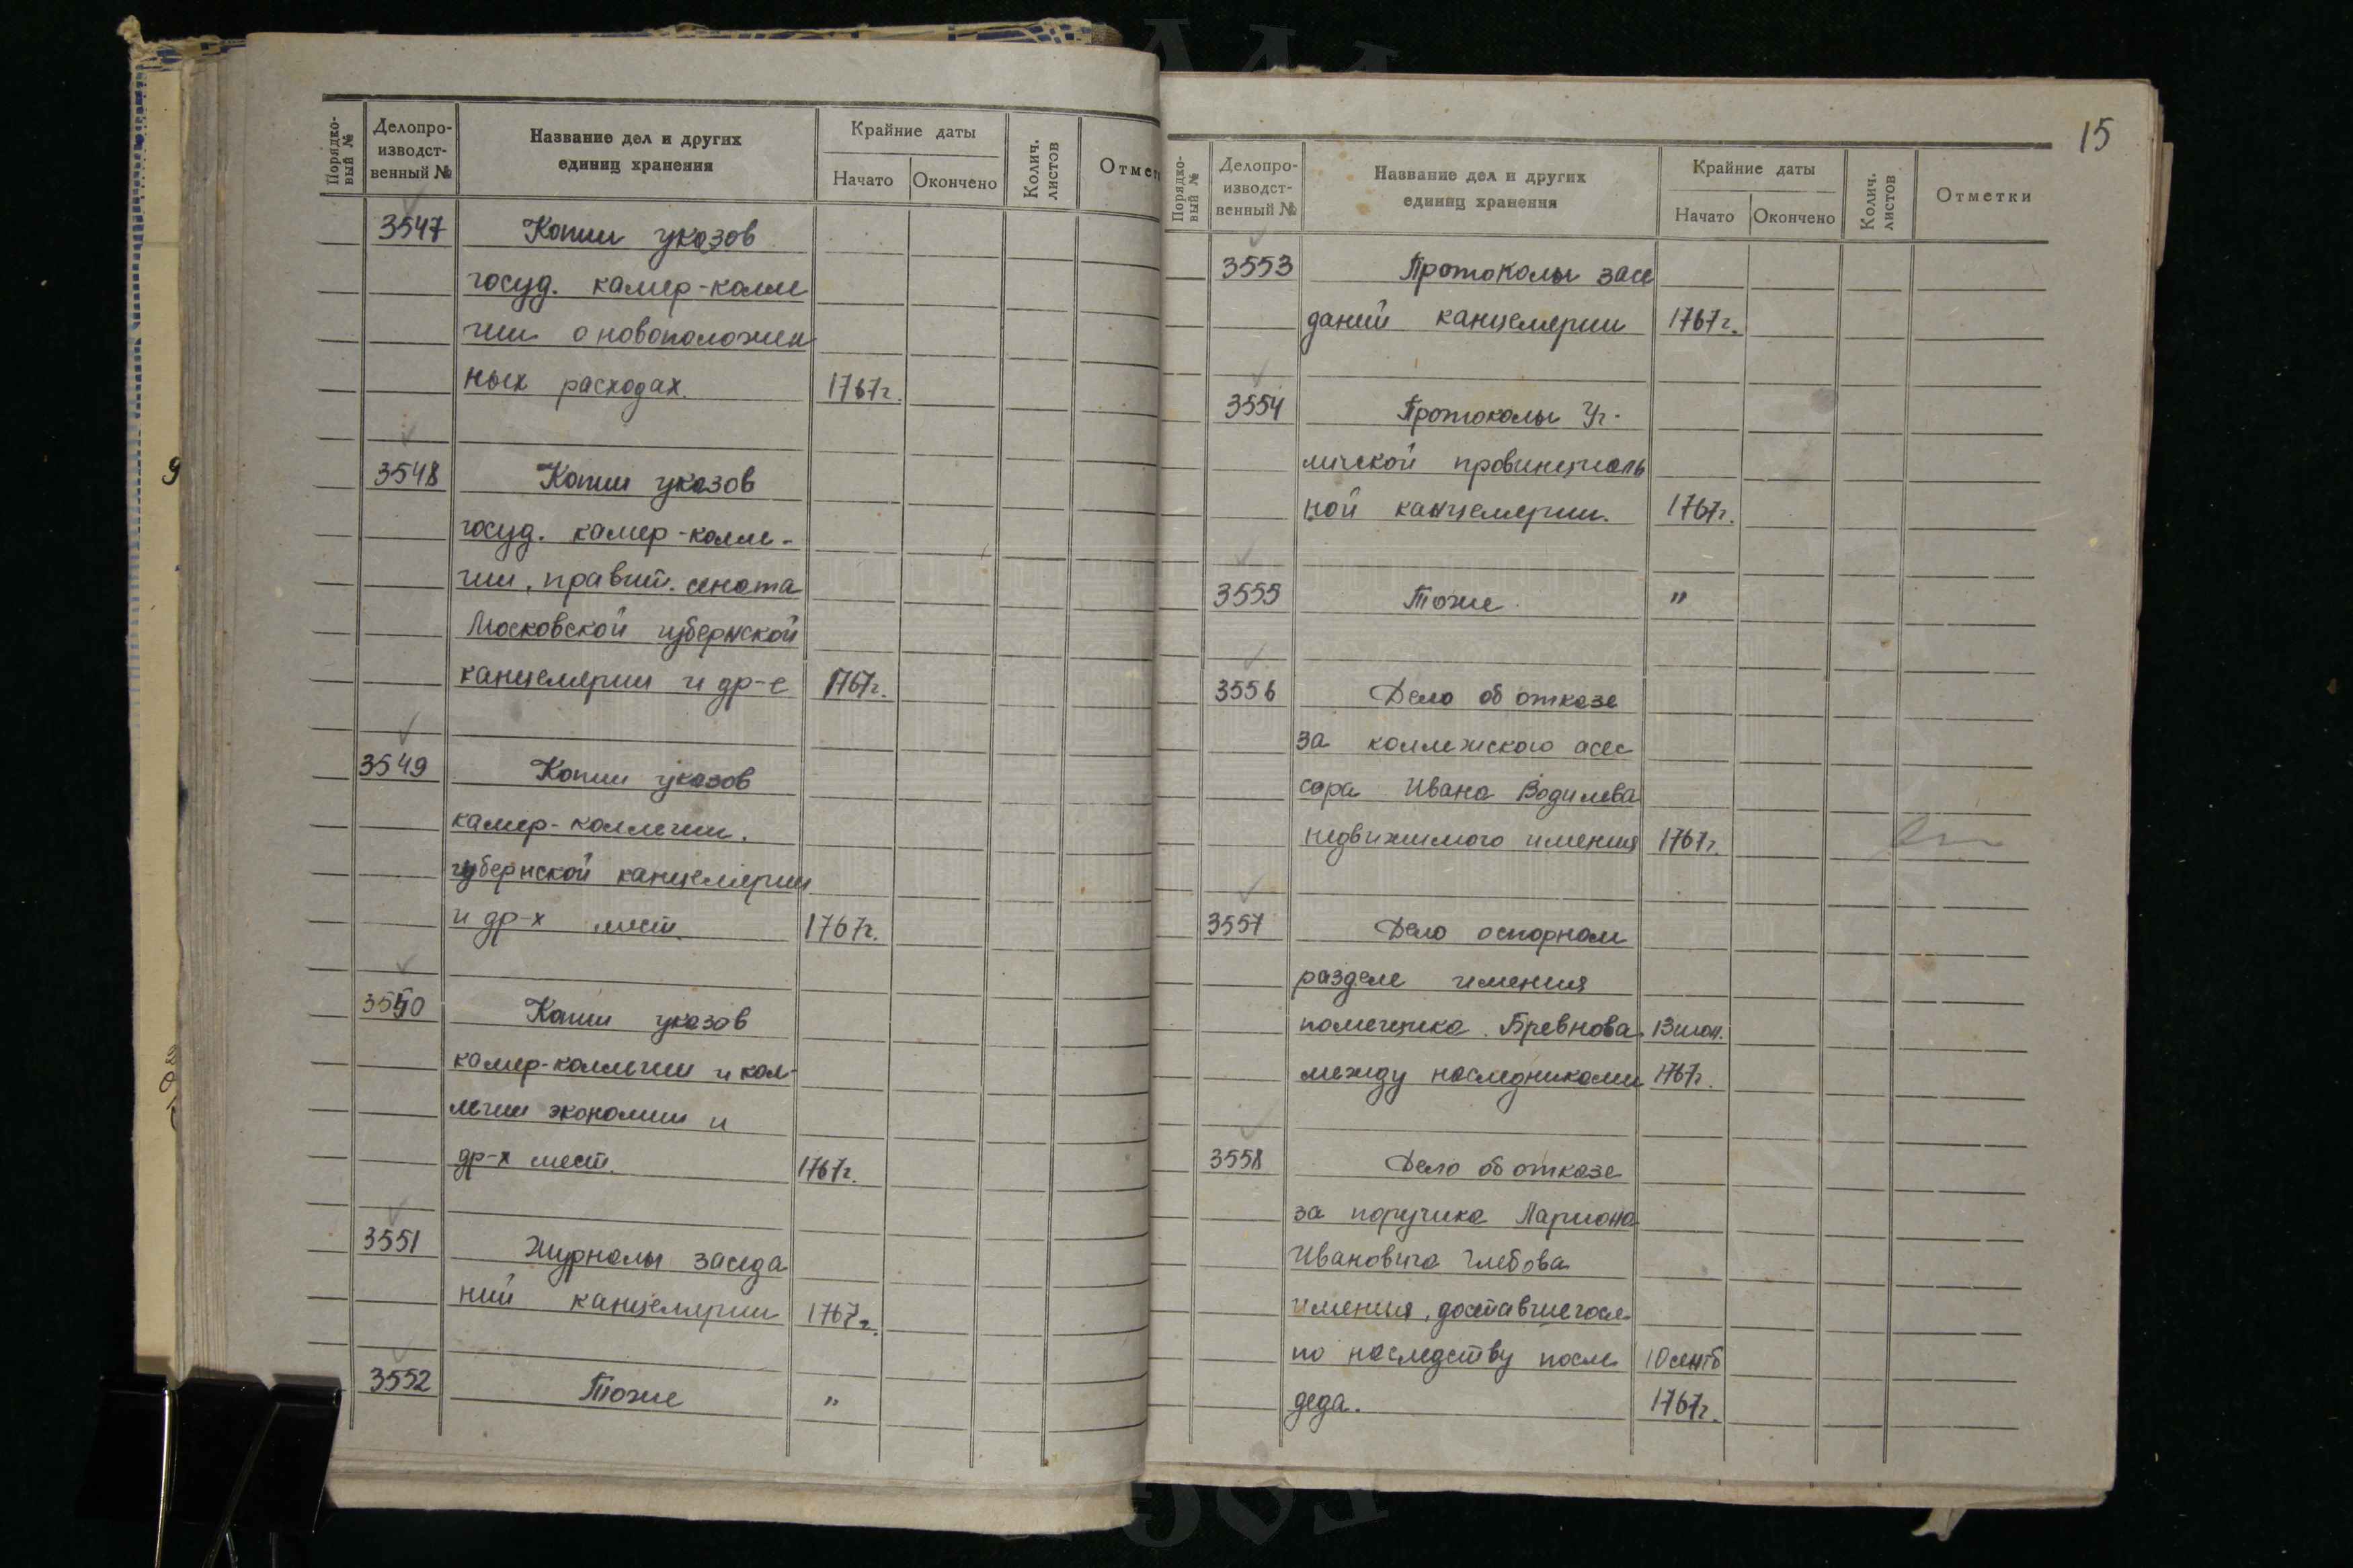 Порядко-
вый №
Делопро-
изводст-
венный №
Название дел и других
единиц хранения
Крайние даты
Начато
Окончено
Колич.
листов
Отмет
3547 Копии указов
госуд. камер-колле
гии о новоположен
ных расходах. 1767г.
3548 Копии указов
госуд. камер-колле-
гии, правит. сената
Московской губернской
канцелярии и др-е 1767г.
3549 Копии указов
камер-коллегии,
губернской канцелярии
и др-х мест. 1767г.
3550 Копии указов
камер-коллегии и кол-
легии экономии и
др-х мест. 1767г.
3551 Журналы заседа
ний канцелярии 1767г.
3552 Тоже "
15
Порядко-
вый №
Делопро-
изводст-
венный №
Название дел и других
единиц хранения
Крайние даты
Начато
Окончено
Колич.
листов
Отметки
3553 Протоколы засе
даний канцелярии 1767г.
3554 Протоколы Уг-
личской провинциаль
ной канцелярии. 1767г.
3555 Тоже. "
3556 Дело об отказе
за коллежского асес
сора Ивана Водилева
недвижимого имения 1767г.
3557 Дело оспорном
разделе имения
помещика Бревнова 13 июл.
между наследниками 1767г.
3558 Дело об отказе
за поручика Лариона
Ивановича Глебова
имения, доставшегося
по наследству после 10 сентб
деда. 1767г.